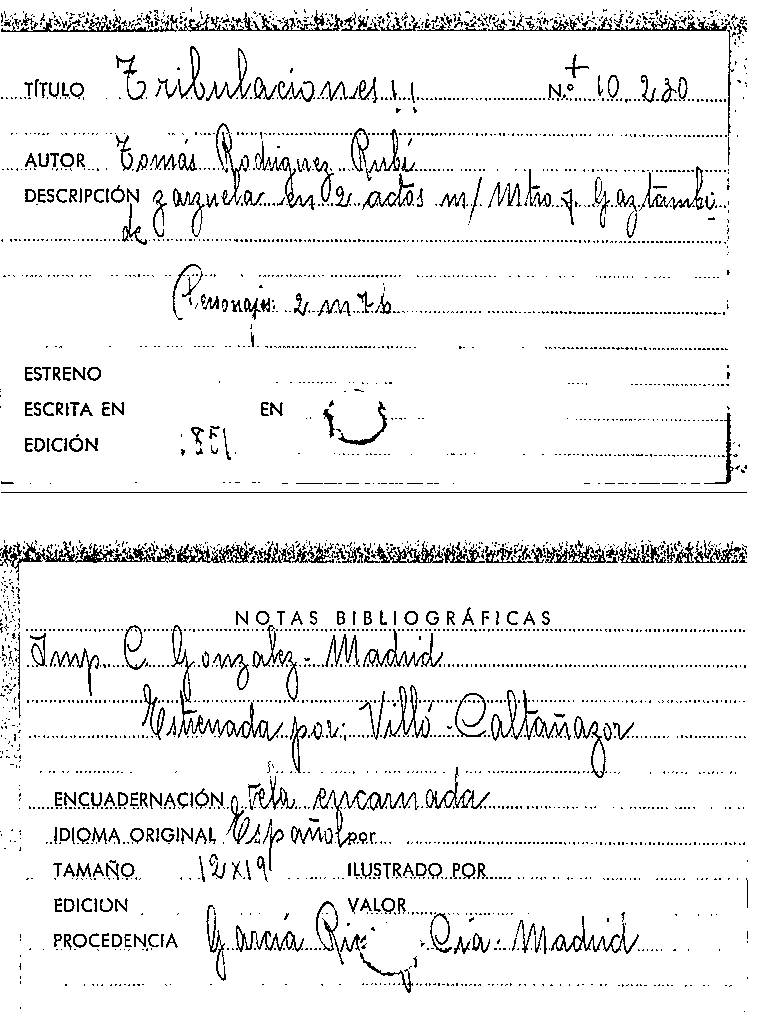 TÍTULO Tribulaciones!! N.º + 10.230
AUTOR Tomás Rodriguez Rubí
DESCRIPCIÓN zarzuela en 2 actos m/ Mtro J. Gaztambi
de
Personajes: 2 m 7 h
ESTRENO
ESCRITA EN EN
EDICIÓN 1851
NOTAS BIBLIOGRÁFICAS
Imp. C. Gonzalez - Madrid
Estrenada por: Villó - Caltañazor
ENCUADERNACIÓN tela encarnada
IDIOMA ORIGINAL Español por
TAMAÑO 12x19 ILUSTRADO POR
EDICION VALOR
PROCEDENCIA García Cia - Madrid